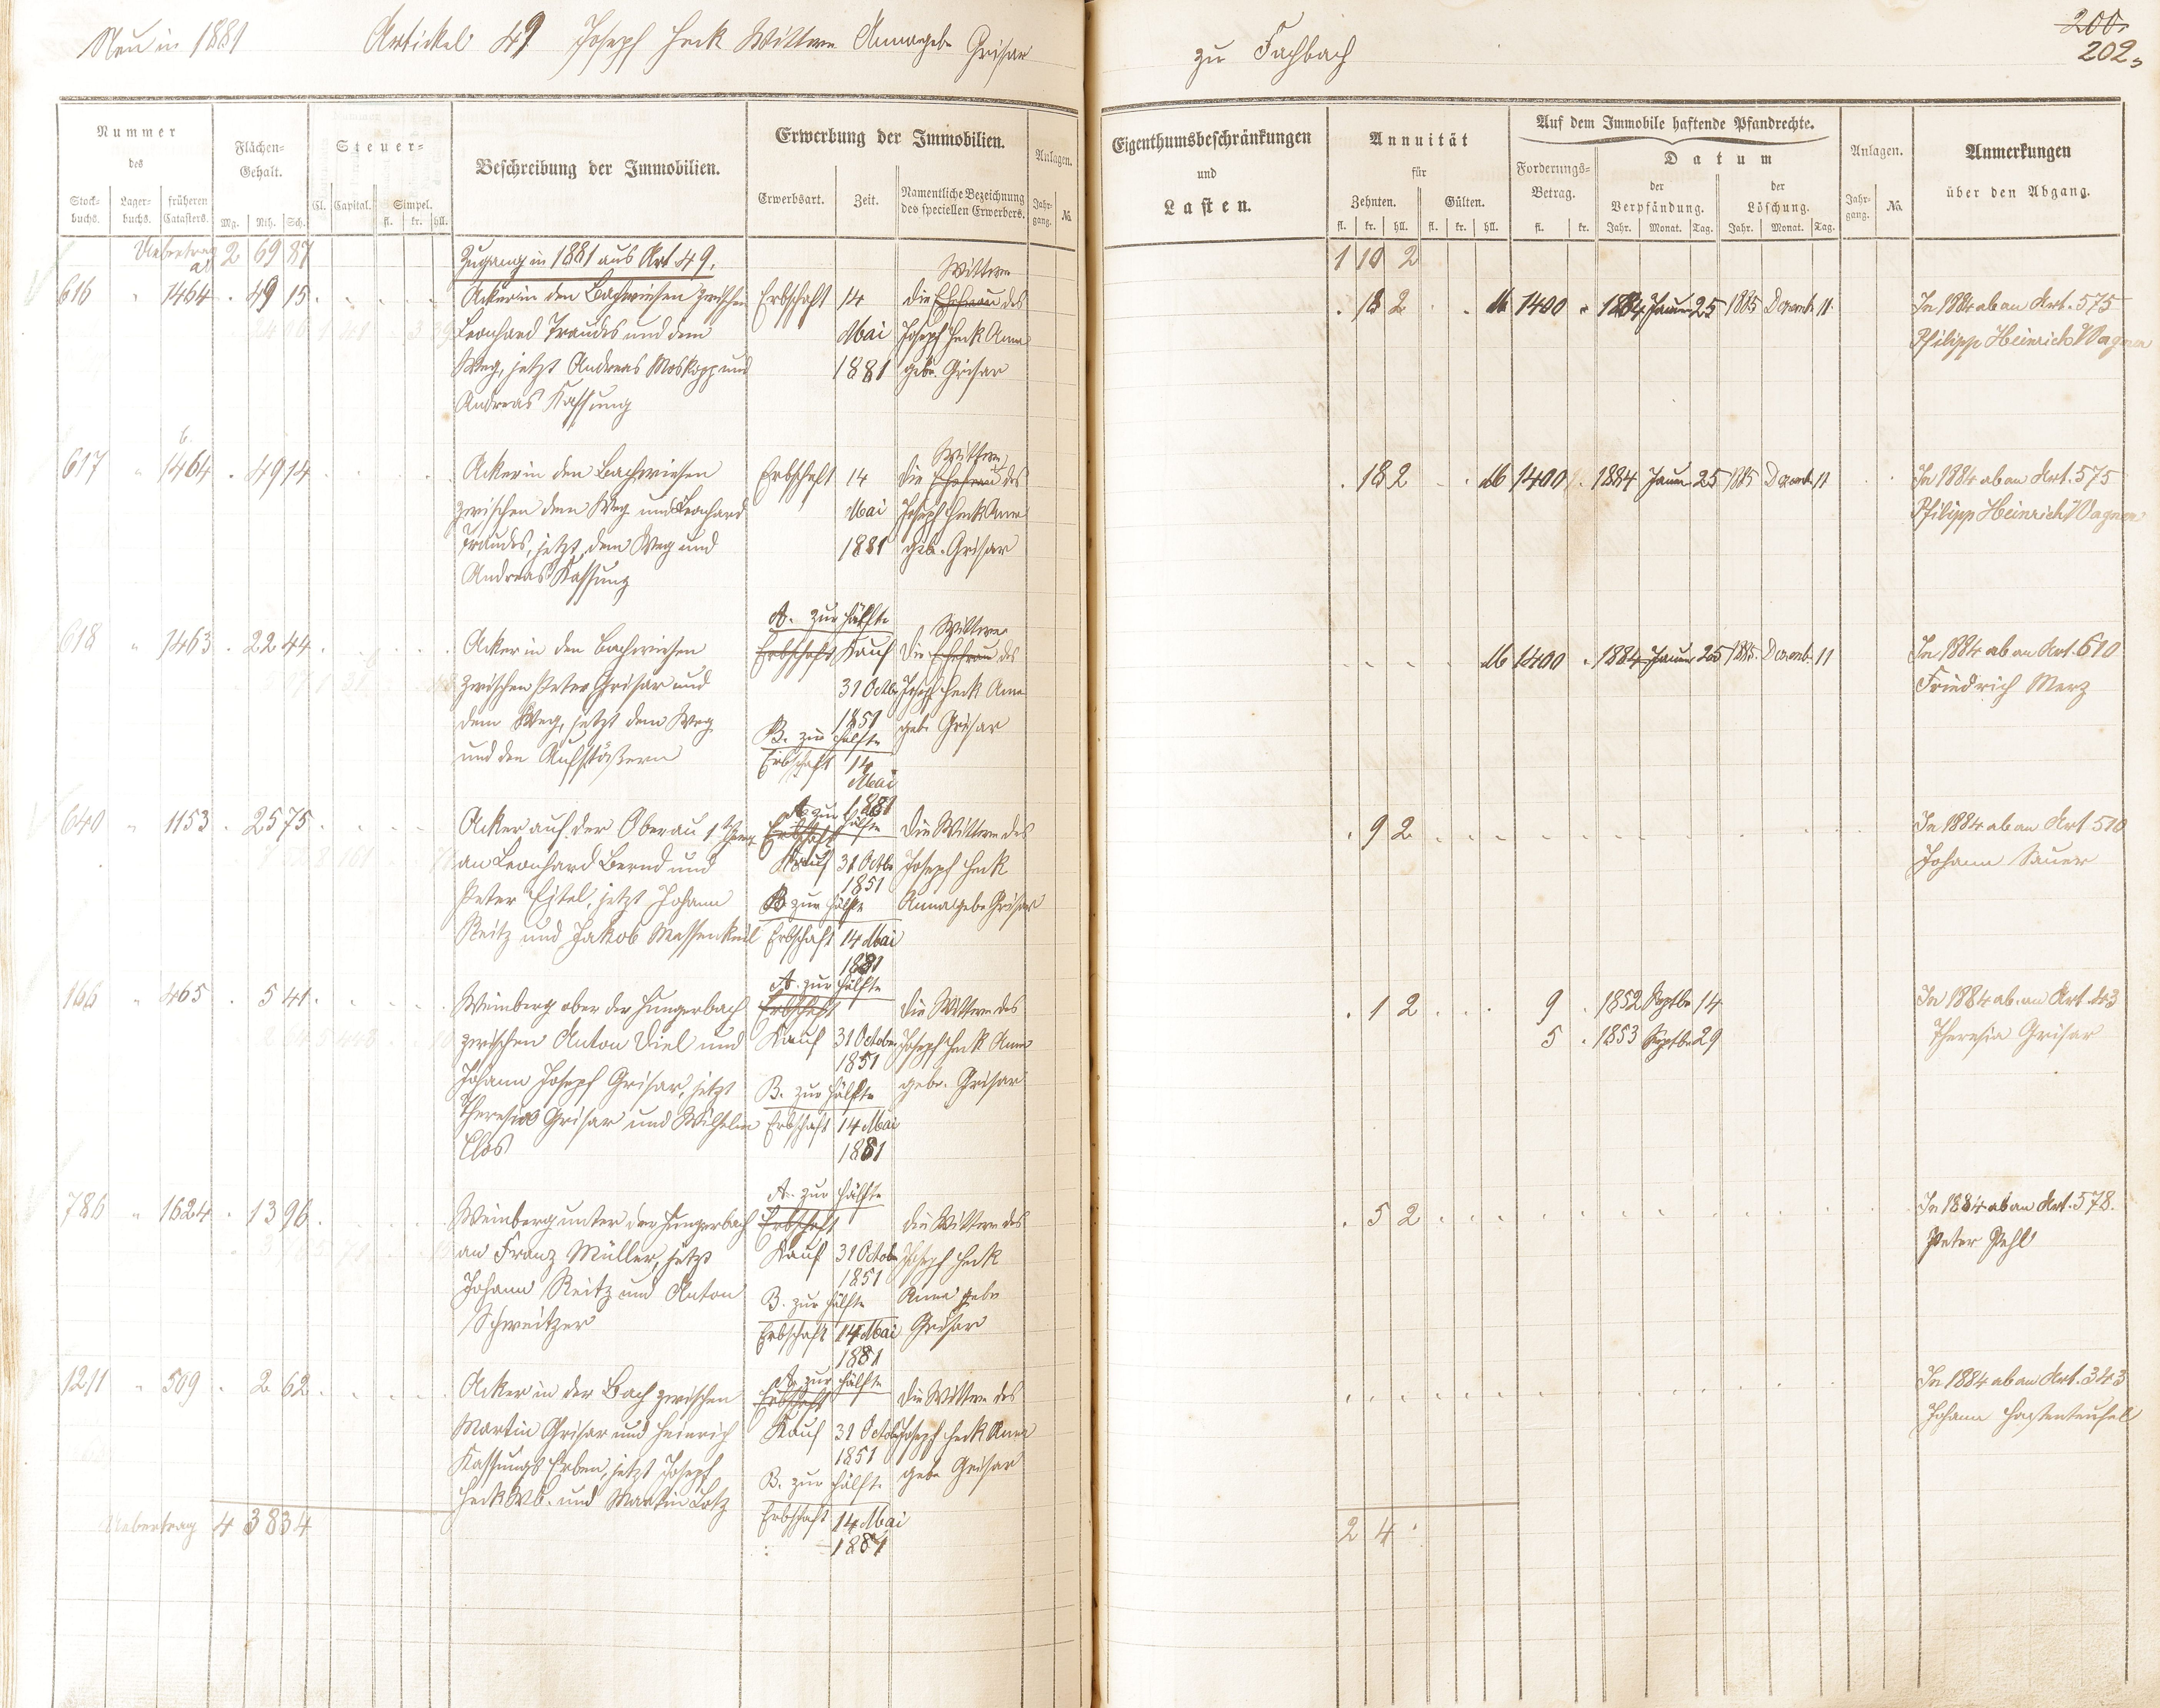 Neu in 1881 Artickel 49 Joseph Heck Wittwe Anna gebe Grisar
zu Fachbach
200.
202.
Nummer
des
Stock-
buchs.
Lager-
buchs.
früheren
Catasters.
Flächen-
Gehalt.
Mg. Rth. Sch.
Steuer-
Cl. Capital. Simpel.
fl. kr. hll.
Beschreibung der Immobilien.
Erwerbung der Immobilien.
Erwerbsart. Zeit.
Namentliche Bezeichnung
des speciellen Erwerbers.
Anlagen.
Jahr-
gang. No.
Eigenthumsbeschränkungen
und
Lasten.
Annuität
für
Zehnten. Gülten.
fl. kr. hll. fl. kr. hll.
Auf dem Immobile haftende Pfandrechte.
Forderungs-
Betrag.
fl. kr.
Datum
der
Verpfändung.
Jahr. Monat. Tag.
der
Löschung.
Jahr. Monat. Tag.
Anlagen.
Jahr-
gang. No.
Anmerkungen
über den Abgang.
Uebertrag 2 69 87 Zugang in 1881 aus Art 49. 1 10 2
616 " 1464 a . 49 15
Acker in den Bachwiesen zwischen
Leonhard Traudes und dem
Weg, jetzt Andreas Moskopp und
Andreas Kassung
Erbschaft 14
Mai
1881
Wittwe
die Ehefrau des
Joseph Heck Anna
gebe. Grisar
. 18 2 M 1400 1884 Januar 25 1885 Decemb. 11
In 1884 ab an Art. 575
Philipp Heinrich Wagner
617 " 1464 b . 49 14
Acker in den Bachwiesen
zwischen dem Weg und Leonhard
Traudes, jetzt dem Weg und
Andreas Kassung
Erbschaft 14
Mai
1881
Wittwe
die Ehefrau des
Joseph Heck Anna
geb. Grisar
. 18 2 M 1400 1884 Januar 25 1885 Decemb. 11
In 1884 ab an Art. 575
Philipp Heinrich Wagner
618 " 1463 . 22 44
Acker in den Bachwiesen
zwischen Peter Grisar und
dem Weg, jetzt dem Weg
und den Aufstößern
A. zur Hälfte
Erbschaft Kauf
31 Octbr
1851
B. zur Hälfte
Erbschaft 14
Mai
1881
Wittwe
die Ehefrau des
Joseph Heck Anna
gebe Grisar
M 1400 . 1884 Januar 25 1885 Decemb. 11
In 1884 ab an Art. 610
Friedrich Merz
640 " 1153 . 25 75
Acker auf der Oberau 1. Gew.
an Leonhard Bernd und
Peter Eitel, jetzt Johann
Reitz und Jakob Massenkeil
A. zur Hälfte
Erbschaft
Kauf 31 Octbr
1851
B. zur Hälfte
Erbschaft 14 Mai
1881
die Wittwe des
Joseph Heck
Anna gebe Grisar
. 9 2
In 1884 ab an Art 510
Johann Sauer
166 " 465 . 5 41
Weinberg ober der Hungerbach
zwischen Anton Diel und
Johann Joseph Grisar, jetzt
Theresia Grisar und Wilhelm
Clos
A. zur Hälfte
Erbschaft
Kauf 31 October
1851
B. zur Hälfte
Erbschaft 14 Mai
1881
die Wittwe des
Joseph Heck Anna
gebe. Grisar
. 1 2 9 . 1852 Septbr 14
5 . 1853 Septbr 29
In 1884 ab an Art. 43
Theresia Grisar
786 " 1624 . 13 96
Weinberg unter der Hungerbach
an Franz Müller, jetzt
Johann Reitz und Anton
Schweitzer
A. zur Hälfte
Erbschaft
Kauf 31 October
1851
B. zur Hälfte
Erbschaft 14 Mai
1881
die Wittwe des
Joseph Heck
Anna gebe
Grisar
. 5 2
In 1884 ab an Art. 578.
Peter Pehl
1211 " 509 . 2 62
Acker in der Bach zwischen
Martin Grisar und Heinrich
Kassungs Erben, jetzt Joseph
Heck Wb. und Martin Lotz
A. zur Hälfte
Erbschaft
Kauf 31 October
1851
B. zur Hälfte
Erbschaft 14 Mai
1881
die Wittwe des
Joseph Heck Anna
gebe Grisar
In 1884 ab an Art. 343
Johann Hastenteufel
Uebertrag 4 38 34
2 4 .